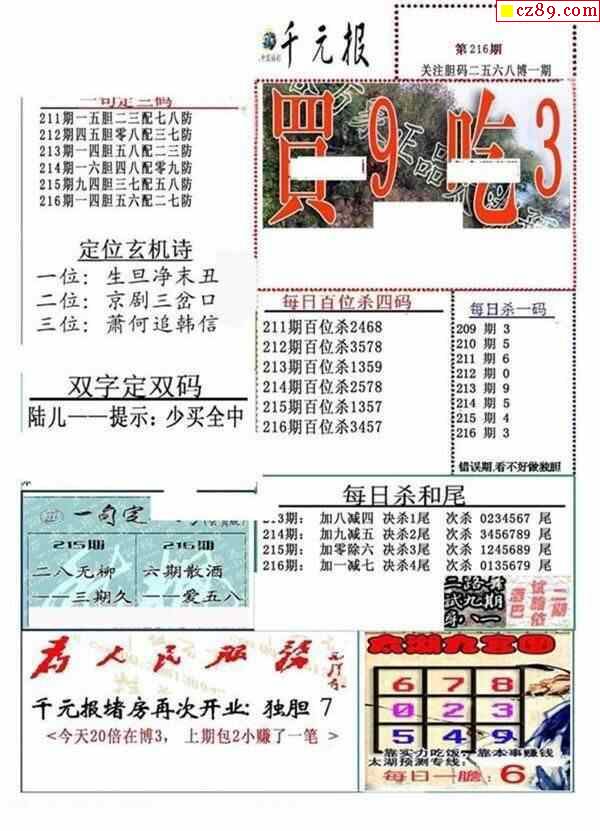 cz89.com
千元报
第216期
关注胆码二五六八博一期
一句定三码
211期一五胆二三配七八防
212期四五胆零八配三七防
213期一四胆五八配二三防
214期一六胆四八配零九防
215期九四胆三七配五八防
216期一四胆五六配二七防
買9吃3
定位玄机诗
一位：生旦净末丑
二位：京剧三岔口
三位：萧何追韩信
每日百位杀四码
211期百位杀2468
212期百位杀3578
213期百位杀1359
214期百位杀2578
215期百位杀1357
216期百位杀3457
每日杀一码
209 期 3
210 期 5
211 期 6
212 期 0
213 期 9
214 期 5
215 期 4
216 期 3
错误期,看不好做独胆
双字定双码
陆儿——提示：少买全中
每日杀和尾
213期： 加八减四 决杀1尾 次杀 0234567 尾
214期： 加九减五 决杀2尾 次杀 3456789 尾
215期： 加零除六 决杀3尾 次杀 1245689 尾
216期： 加一减七 决杀4尾 次杀 0135679 尾
一句定
215期
二八无柳
——三期久
216期
六期散酒
——爱五八
为人民服务
千元报堵房再次开业: 独胆 7
<今天20倍在博3， 上期包2小赚了一笔 >
太湖九宫图
6 7 8
0 2 3
5 4 9
靠实力吃饭，靠本事赚钱
太湖预测专线:
每日一胆: 6